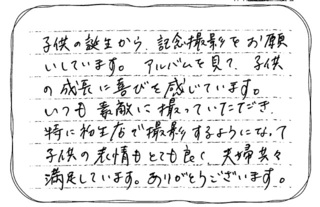 子供の誕生から 記念撮影をお願
いしています。 アルバムを見て、子供
の成長に喜びを感じています。
いつも素敵に撮っていただき
特に 店で撮影するようになって
子供の表情もとても良く 夫婦共々
満足しています。ありがとうございます。